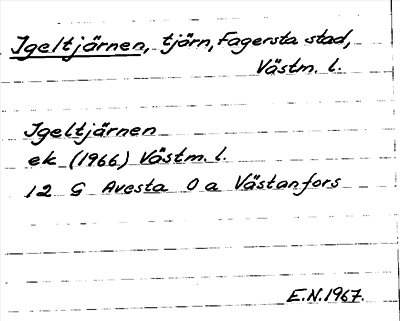 Igeltjärnen, tjärn, Fagersta stad,
Västm. l.
Igeltjärnen
ek (1966) Västm. l.
12 G Avesta 0 a Västanfors
E.N. 1967.